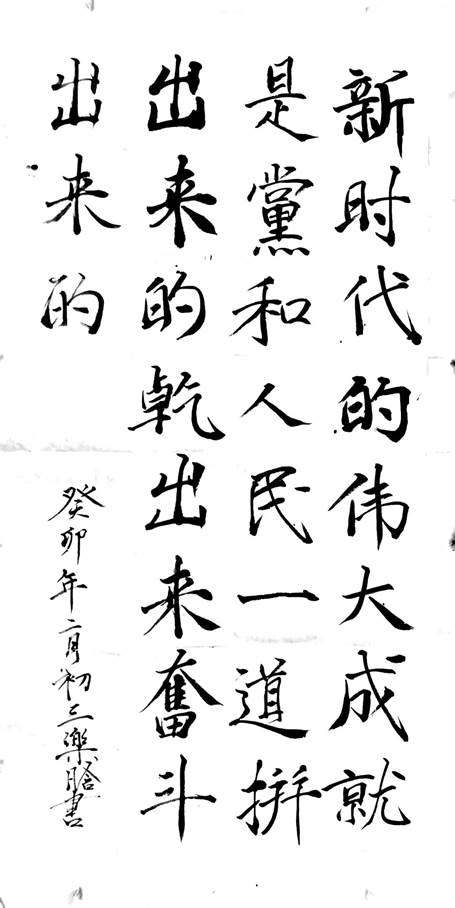 新时代的伟大成就
是黨和人民一道拼
出来的乾出来奮斗
出来的
癸卯年二月初三樂膾書